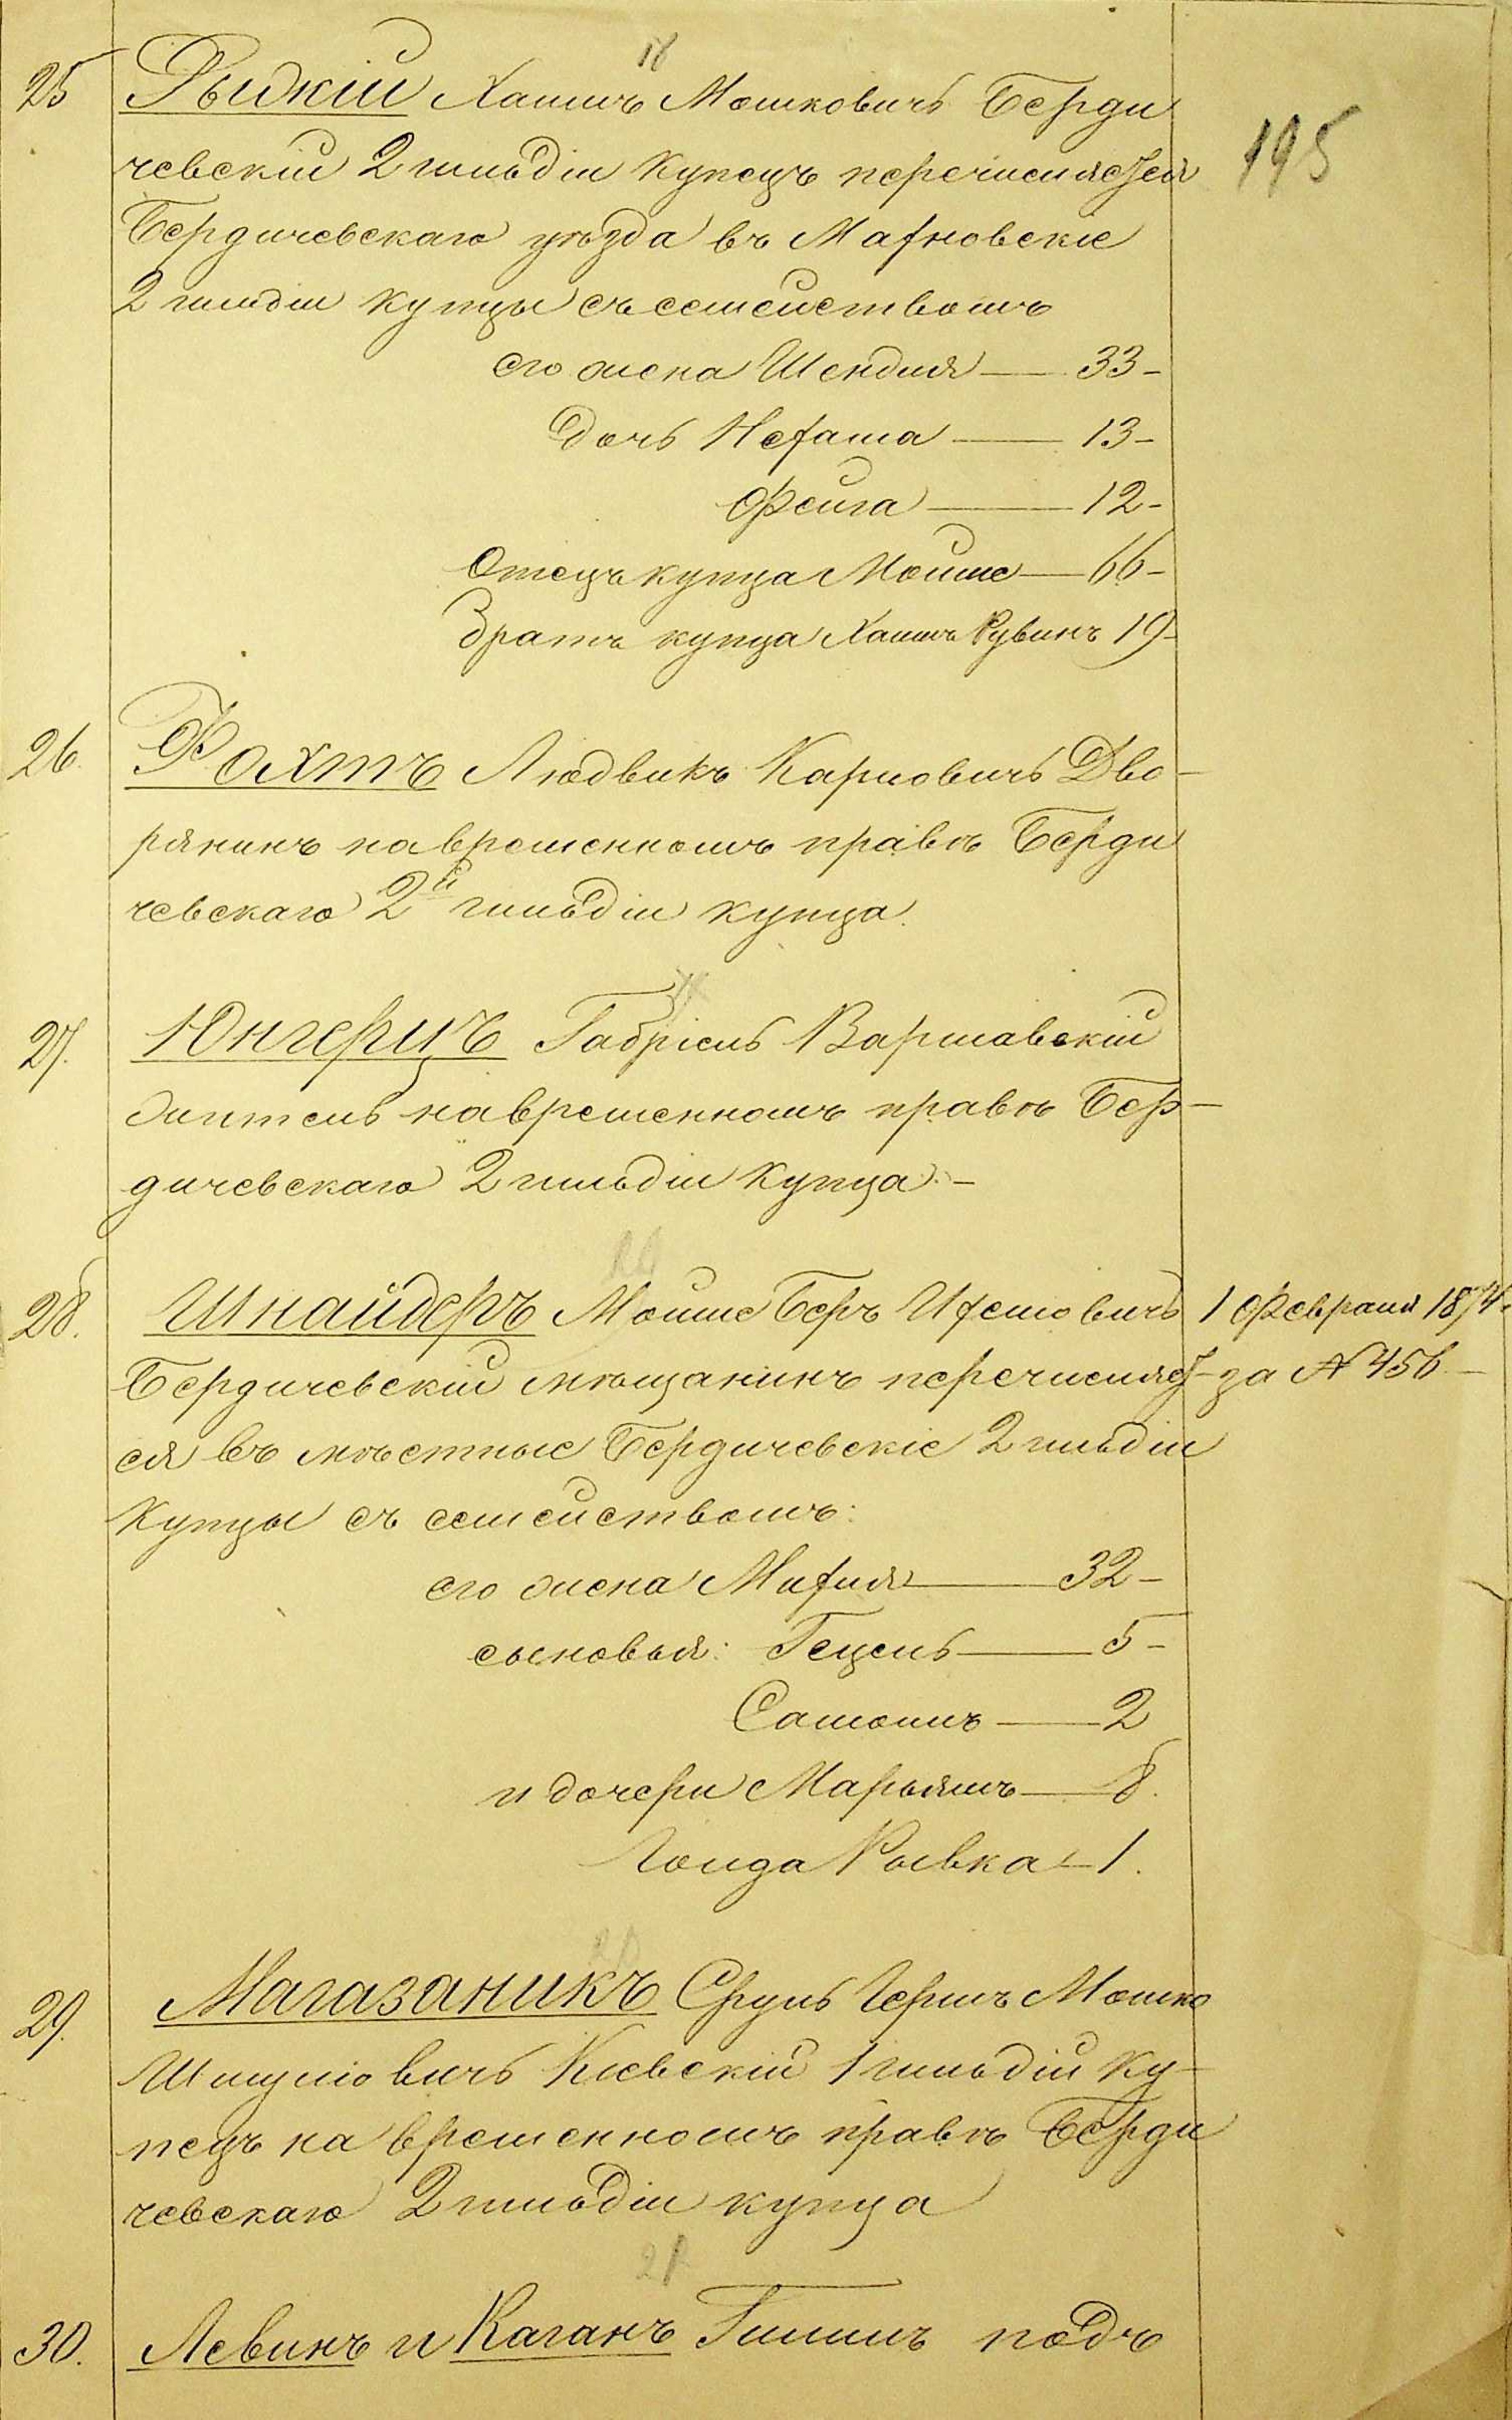 18
25 Рыдкій Хаимъ Мошковичъ Берди
чевскій 2 гильдіи купецъ перечисляется
195
Бердичевскаго уѣзда въ Махновскіе
2 гильдіи купцы съ семействомъ
его жена Шендля — 33 –
дочь Нехама — 13 –
Фейга — 12 –
Отецъ купца Мойше — 66 –
Братъ купца Хаимъ Рувинъ 19 –
26. Фохтъ Людвикъ Карловичъ Дво-
рянинъ на временномъ правѣ Берди
чевскаго 2й гильдіи купца.
27. Юнгерицъ Габріель Варшавскій
житель на временномъ правѣ Бер-
дичевскаго 2 гильдіи купца. –
28. Шнайдеръ Мойше Беръ Ихелевичъ 1 Февраля 1874.
Бердичевскій мѣщанинъ перечисляет- за № 456 –
ся въ мѣстные Бердичевскіе 2 гильдіи
купцы съ семействомъ:
его жена Михля — 32 –
сыновья: Гецель — 5 –
Саломъ — 2
и дочери Марьямъ — 8.
Гольда Рывка — 1.
29. Магазаникъ Сруль Гершъ Мошко
Шмулiовичъ Кіевскій 1 гильдіи ку-
пецъ на временномъ правѣ Берди
чевскаго 2 гильдіи купца
21
30. Левинъ и Каганъ Гилличъ подъ